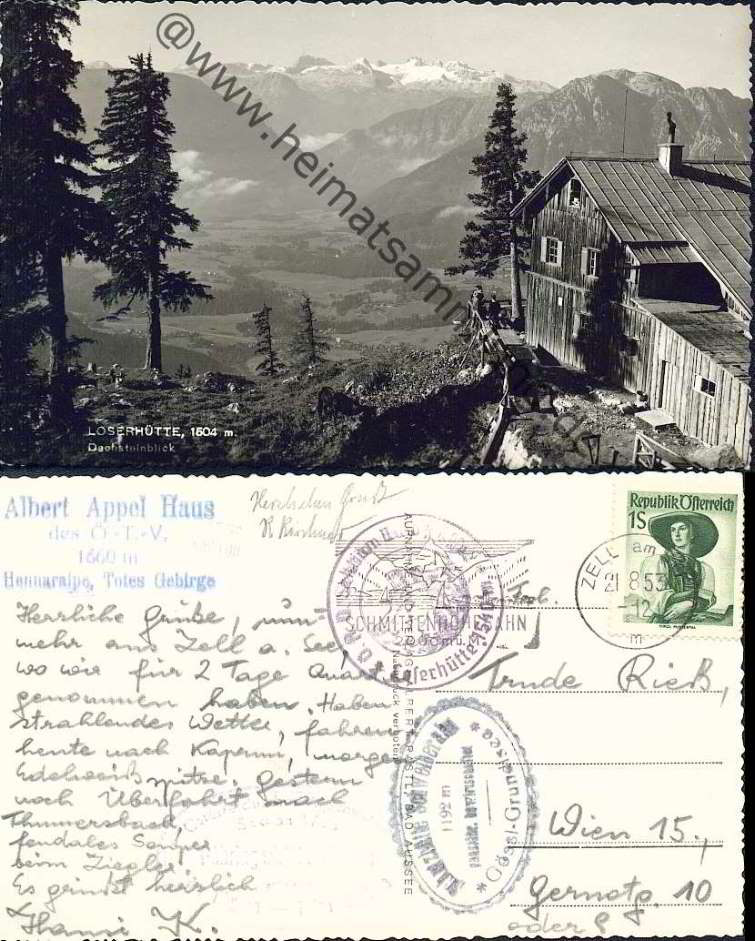 @www.heimatsamm
LOSERHÜTTE, 1504 m.
Dachsteinblick
Albert Appel Haus
des Ö.T.V.
1660 m
Hennaralpe, Totes Gebirge
Herzlichen Gruß
Republik Österreich
1S
ZELL am
21.8.53
-12
m
SCHMITTENHÖHEBAHN
2000 m ü.
Loserhütte, 1504 m
Herrliche Grüße, nun-
mehr aus Zell a. See
wo wir für 2 Tage Quartier
genommen haben. Haben
strahlendes Wetter, fahren
heute nach Kaprun, morgen
Edelweißspitze. Gestern
noch Überfahrt nach
Thumersbach,
feudales Souper
beim Ziegler.
Es grüsst herzlich
Hansi K.
Trude Rieß,
Wien 15.,
Gernotg. 10
oder 8
1192 m
Gössl-Grundlsee
BAD AUSSEE